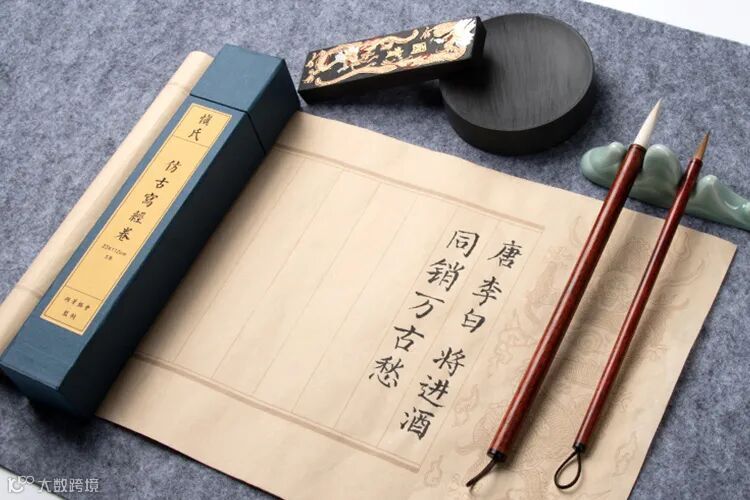 唐 李白 将进酒
同销万古愁
慎氏
仿古寫經卷
大数跨境